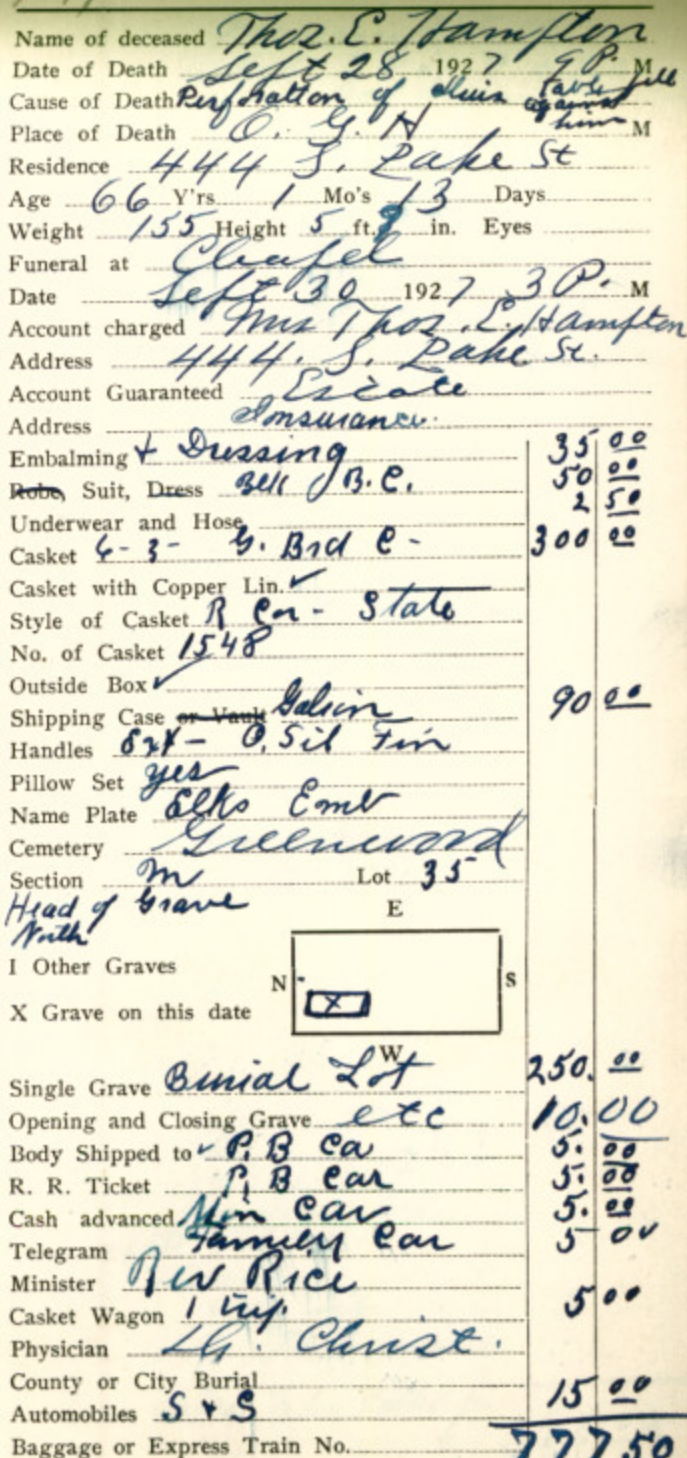 Name of deceased Thos. E. Hampton
Date of Death Sept 28 1927 9 P. M
Cause of Death Perforation of table fell
against
Place of Death O. G. H him M
Residence 444 S. Lake St
Age 66 Y'rs 1 Mo's 13 Days
Weight 155 Height 5 ft. 9 in. Eyes
Funeral at Chapel
Date Sept 30 1927 3 P. M
Account charged Mrs Thos. E. Hampton
Address 444. S. Lake St.
Account Guaranteed Estate
Address Insurance
Embalming + Dressing 35 00
Robe, Suit, Dress B.C. 50 00
2 50
Underwear and Hose
Casket 6-3- G. Brd C- 300 00
Casket with Copper Lin. ✓
Style of Casket R Cor - State
No. of Casket 1548
Outside Box ✓
Shipping Case or Vault Galion 90 00
Handles Ext - O. Sil Fin
Pillow Set yes
Name Plate Elks Emb
Cemetery Greenwood
Section M Lot 35
Head of Grave
North
E
I Other Graves
N S
X Grave on this date
X
W
Single Grave Burial Lot 250. 00
Opening and Closing Grave etc 10. 00
Body Shipped to ✓ P. B Ca 5. 00
R. R. Ticket P. B Car 5. 00
Cash advanced Min Car 5. 00
Telegram Family Car 5 00
Minister Rev Rice
Casket Wagon 1 trip. 5 00
Physician Christ.
County or City Burial
Automobiles S + S 15 00
Baggage or Express Train No. 777 50